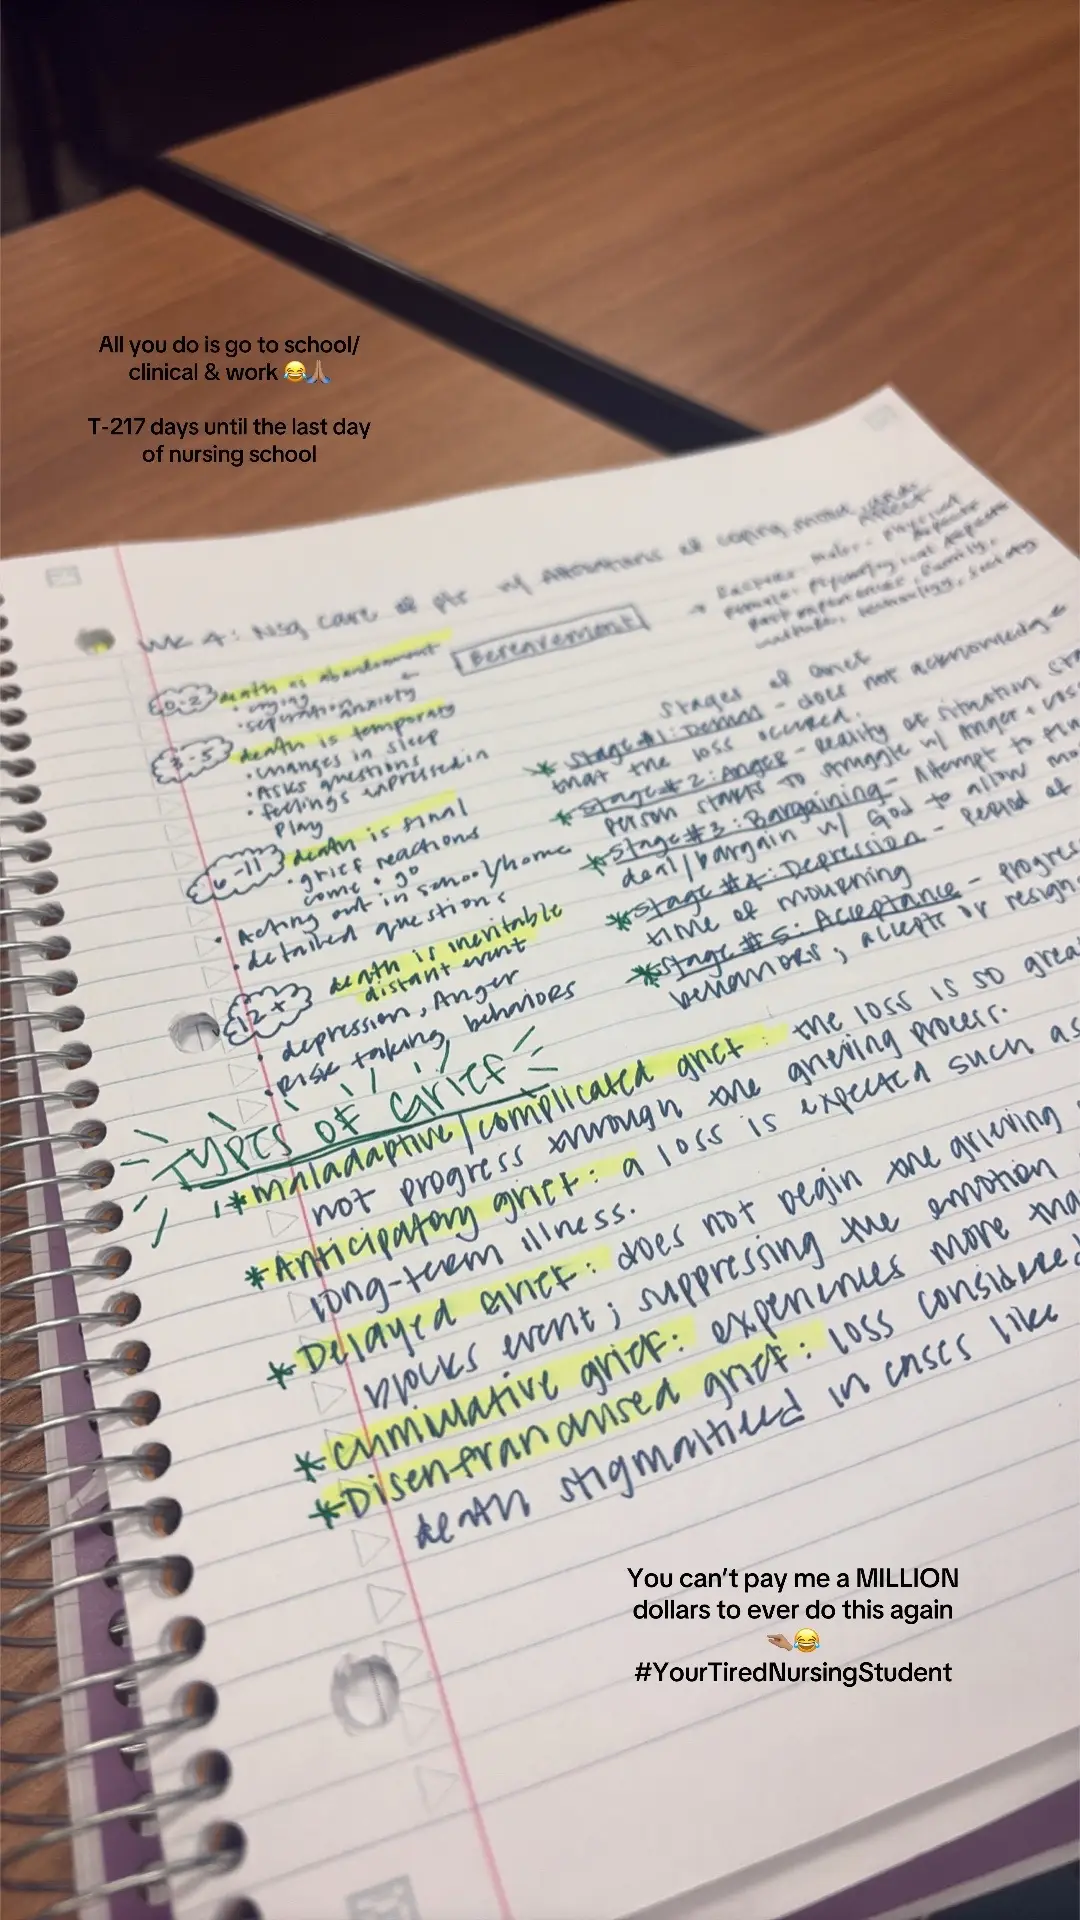 All you do is go to school/
clinical & work 😂🙏🏽
T-217 days until the last day
of nursing school
WK 4: Nsg care of pts w/ Alterations of coping, mood and
Affect
Bereavement
→ Factors: Male - physical aspects
Female: psychological aspects
past experiences, family,
culture, technology, society
0-2 death as abandonment
• crying
• separation anxiety
3-5 death is temporary
• changes in sleep
• Asks questions
• feelings expressed in
play
6-11 death is final
• grief reactions
come + go
• Acting out in school/home
• detailed questions
12+ death is inevitable
distant event
• depression, Anger
• Risk taking behaviors
Stages of Grief
* Stage #1: Denial - does not acknowledge
that the loss occured.
* Stage #2: Anger - reality of situation
person starts to struggle w/ Anger +
* Stage #3: Bargaining - Attempt to
deal/bargain w/ God to allow
* Stage #4: Depression - Period of
time of mourning
* Stage #5: Acceptance -
behaviors; accepts or
Types of Grief
* Maladaptive/complicated grief: the loss is so
not progress through the grieving process.
* Anticipatory grief: a loss is expected such as
long-term illness.
* Delayed grief: does not begin the grieving
blocks event; suppressing the emotion
* cumulative grief: experiences more
* Disenfranchised grief: loss considered
death stigmatized in cases like
You can't pay me a MILLION
dollars to ever do this again
🤏🏽😂
#YourTiredNursingStudent